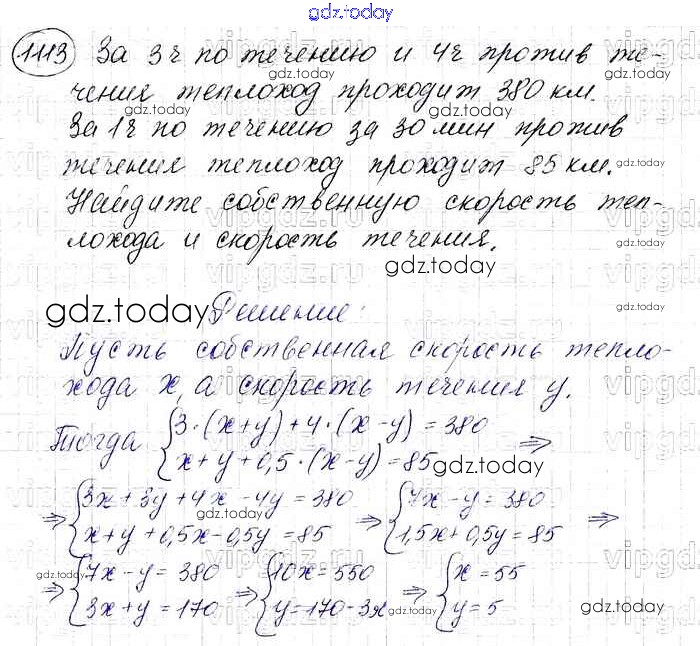 gdz.today
1113 За 3ч по течению и 4ч против те-
чения теплоход проходит 380 км.
За 1ч по течению за 30 мин против
течения теплоход проходит 85 км.
Найдите собственную скорость теп-
лохода и скорость течения.
gdz.today
gdz.today Решение:
Пусть собственная скорость тепло-
хода x, а скорость течения y.
Тогда { 3·(x+y)+4·(x-y)=380
x+y+0,5·(x-y)=85 ⇒
gdz.today
⇒ { 3x+3y+4x-4y=380
x+y+0,5x-0,5y=85 ⇒ { 7x-y=380
1,5x+0,5y=85 ⇒
⇒ { 7x-y=380
3x+y=170 ⇒ { 10x=550
y=170-3x ⇒ { x=55
y=5
gdz.today